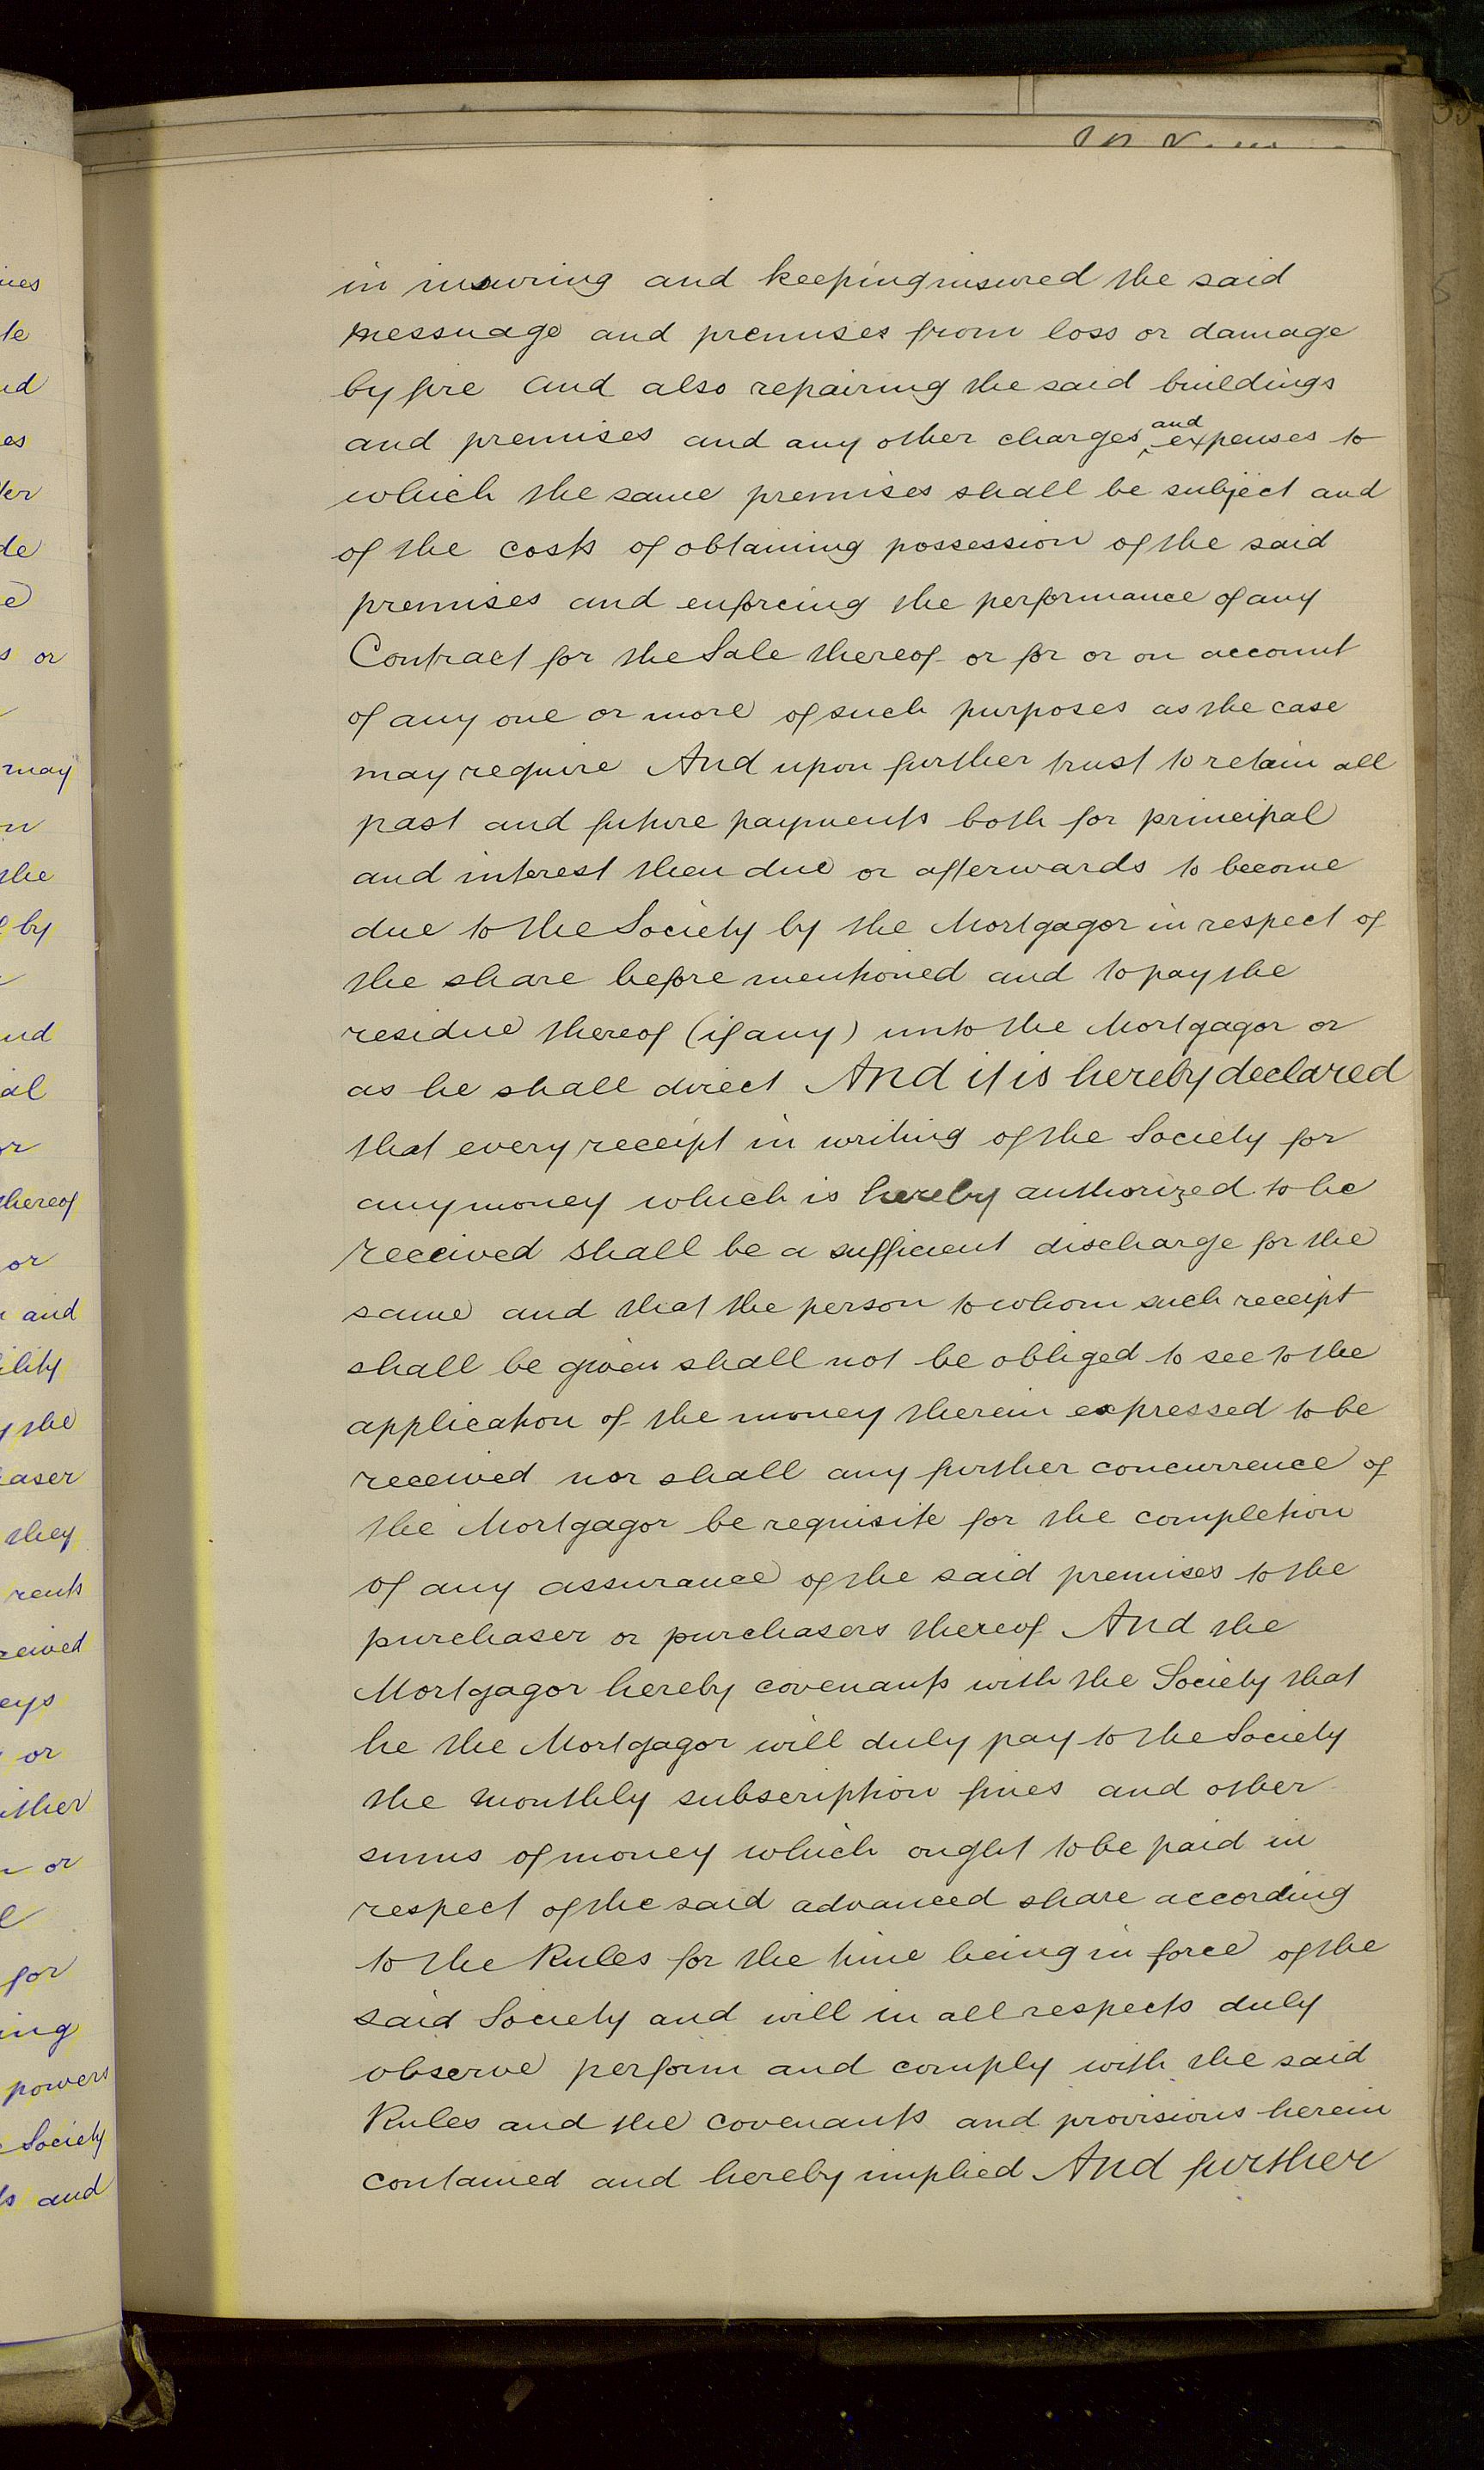 in insuring and keeping insured the said
messuage and premises from loss or damage
by fire and also repairing the said buildings
and premises and any other charges and expenses to
which the same premises shall be subject and
of the costs of obtaining possession of the said
premises and enforcing the performance of any
Contract for the Sale thereof or for or on account
of any one or more of such purposes as the case
may require And upon further trust to retain all
past and future payments both for principal
and interest then due or afterwards to become
due to the Society by the Mortgagor in respect of
the share before mentioned and to pay the
residue thereof (if any) unto the Mortgagor or
as he shall direct And it is hereby declared
that every receipt in writing of the Society for
any money which is hereby authorized to be
received shall be a sufficient discharge for the
same and that the person to whom such receipt
shall be given shall not be obliged to see to the
application of the money therein expressed to be
received nor shall any further concurrence of
the Mortgagor be requisite for the completion
of any assurance of the said premises to the
purchaser or purchasers thereof And the
Mortgagor hereby covenants with the Society that
he the Mortgagor will duly pay to the Society
the monthly subscription fines and other
sums of money which ought to be paid in
respect of the said advanced share according
to the Rules for the time being in force of the
said Society and will in all respects duly
observe perform and comply with the said
Rules and the covenants and provisions herein
contained and hereby implied And further